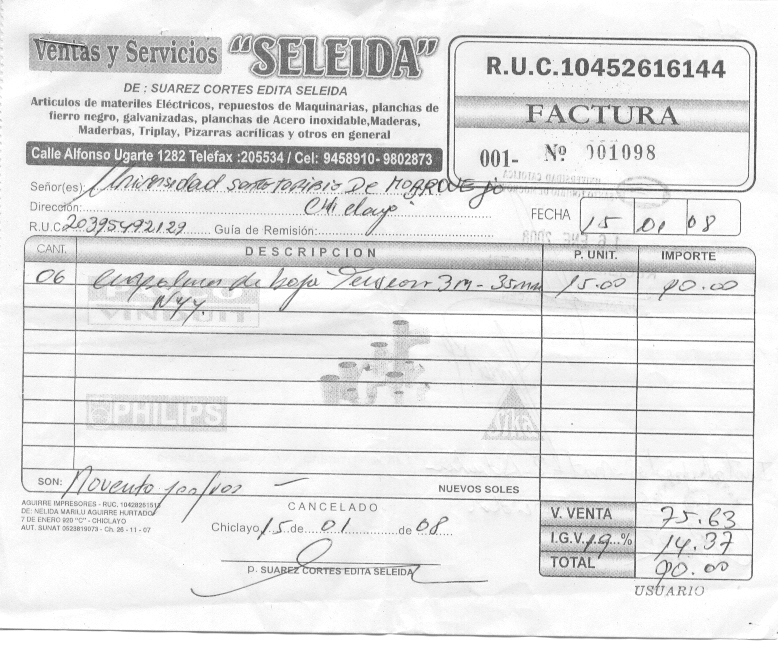 Ventas y Servicios "SELEIDA"
DE : SUAREZ CORTES EDITA SELEIDA
Articulos de materiles Eléctricos, repuestos de Maquinarias, planchas de
fierro negro, galvanizadas, planchas de Acero inoxidable,Maderas,
Maderbas, Triplay, Pizarras acrílicas y otros en general
Calle Alfonso Ugarte 1282 Telefax :205534 / Cel: 9458910- 9802873
R.U.C.10452616144
FACTURA
001- Nº 001098
Señor(es) Universidad Santo Toribio De Mogrovejo
Dirección: Chiclayo
R.U.C 20395492129 Guía de Remisión:
FECHA 15 01 08
CANT. DESCRIPCION P. UNIT. IMPORTE
06 de baja Tension 3M - 35mm 15.00 90.00
NYY.
PHILIPS
Sika
SON: Noventa 100/100 NUEVOS SOLES
AGUIRRE IMPRESORES - RUC. 10428251513
DE: NELIDA MARILU AGUIRRE HURTADO
7 DE ENERO 920 "C" - CHICLAYO
AUT. SUNAT 0523819073 - Ch. 26 - 11 - 07
CANCELADO
Chiclayo, 15 de 01 de 08
p. SUAREZ CORTES EDITA SELEIDA
V. VENTA 75.63
I.G.V. 19 % 14.37
TOTAL 90.00
USUARIO